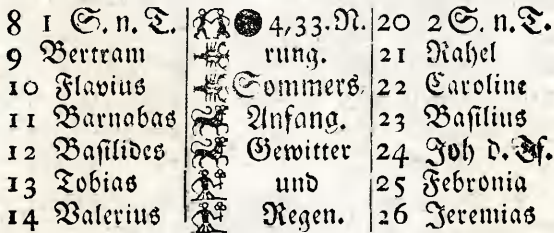 8 1 S. n. T. 4,33. N. 20 2 S. n. T.
9 Bertram rung. 21 Rahel
10 Flavius Sommers 22 Caroline
11 Barnabas Anfang. 23 Basilius
12 Basilides Gewitter 24 Joh d. Tf.
13 Tobias und 25 Febronia
14 Valerius Regen. 26 Jeremias